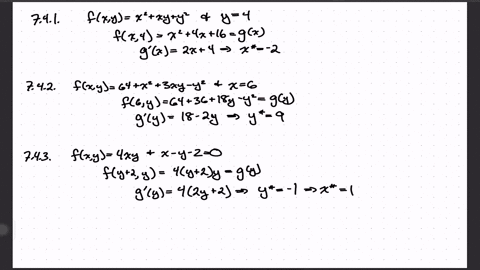 7.4.1. f(x,y)=x²+xy+y² & y=4
f(x,4)=x²+4x+16=g(x)
g'(x)=2x+4 ⇒ x*=-2
7.4.2. f(x,y)=64+x²+3xy-y² & x=6
f(6,y)=64+36+18y-y²=g(y)
g'(y)=18-2y ⇒ y*=9
7.4.3. f(x,y)=4xy & x-y-2=0
f(y+2,y)=4(y+2)y=g(y)
g'(y)=4(2y+2) ⇒ y*=-1 ⇒ x*=1